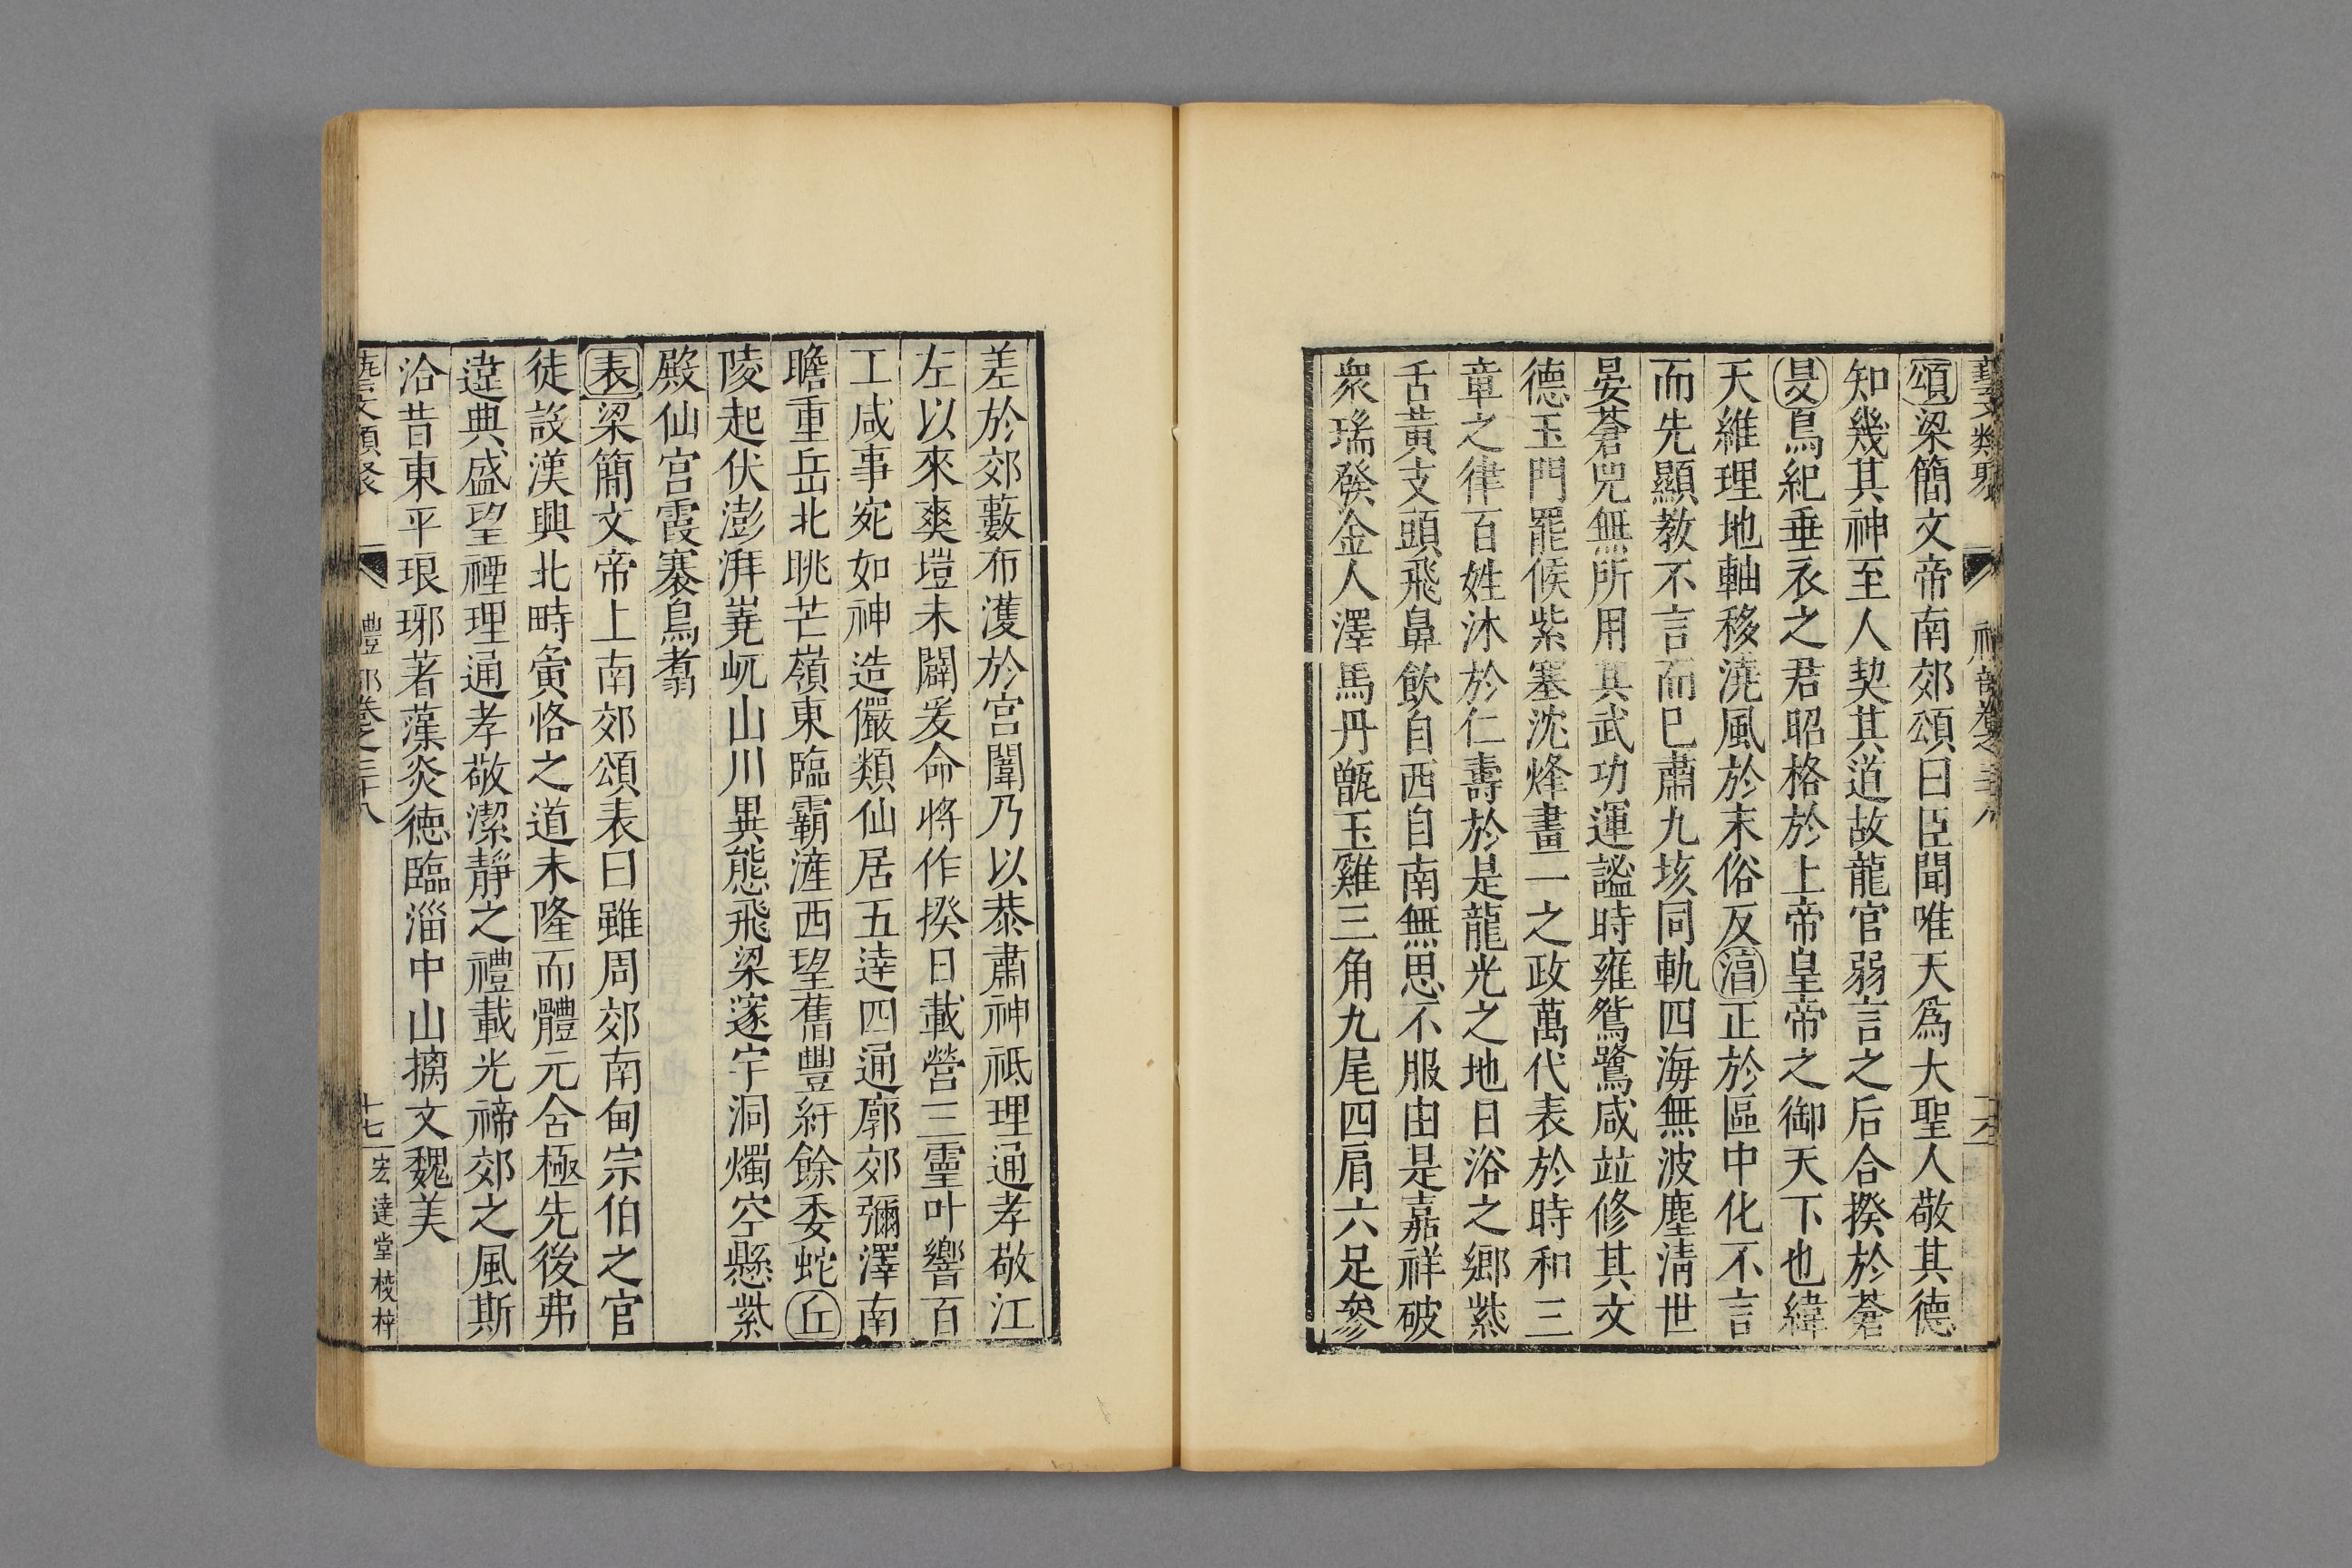 藝文類聚 禮部卷之三十八 十六
頌梁簡文帝南郊頌曰臣聞唯天爲大聖人敬其德
知幾其神至人契其道故龍官弱言之后合揆於蒼
旻鳥紀垂衣之君昭格於上帝皇帝之御天下也緯
天維理地軸移澆風於末俗反淯正於區中化不言
而先顯教不言而巳肅九垓同軌四海無波塵清世
晏蒼兕無所用其武功運謐時雍鴛鷺咸竝修其文
德玉門罷候紫塞沈烽畫一之政萬代表於時和三
章之律百姓沐於仁壽於是龍光之地日浴之鄉紫
舌黃支頭飛鼻飲自西自南無思不服由是嘉祥破
衆瑞發金人澤馬丹甑玉雞三角九尾四肩六足參
差於郊藪布濩於宮闈乃以恭肅神祗理通孝敬江
左以來爽塏未闢爰命將作揆日載營三靈叶響百
工咸事宛如神造儼類仙居五逵四通廓郊彌澤南
瞻重岳北眺芒嶺東臨霸滻西望舊豐紆餘委蛇丘
陵起伏澎湃嵬岏山川異態飛梁邃宇洞燭空懸紫
殿仙宮霞褰鳥翥
表梁簡文帝上南郊頌表曰雖周郊南甸宗伯之官
徒設漢興北畤寅恪之道未隆而體元含極先後弗
違典盛望禋理通孝敬潔靜之禮載光禘郊之風斯
洽昔東平琅琊著藻炎德臨淄中山摛文魏美
藝文類聚 禮部卷之三十八 十七 宏達堂校梓